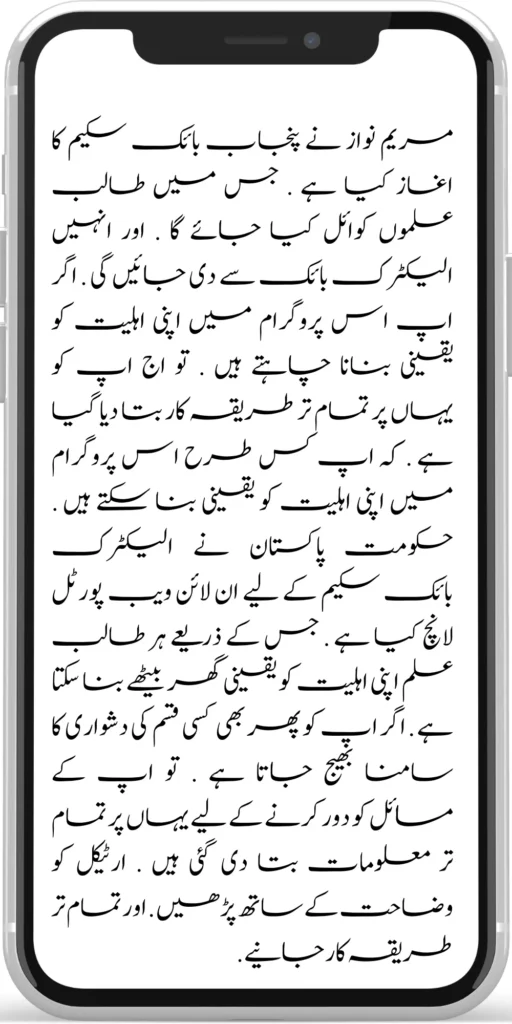 مریم نواز نے پنجاب بائک سکیم کا
اغاز کیا ہے . جس میں طالب
علموں کوائل کیا جائے گا . اور انہیں
الیکٹرک بائک سے دی جائیں گی . اگر
اپ اس پروگرام میں اپنی اہلیت کو
یقینی بنانا چاہتے ہیں . تو اج اپ کو
یہاں پر تمام تر طریقہ کار بتا دیا گیا
ہے . کہ اپ کس طرح اس پروگرام
میں اپنی اہلیت کو یقینی بنا سکتے ہیں .
حکومت پاکستان نے الیکٹرک
بائک سکیم کے لیے ان لائن ویب پورٹل
لانچ کیا ہے . جس کے ذریعے ہر طالب
علم اپنی اہلیت کو یقینی گھر بیٹھے بنا سکتا
ہے . اگر اپ کو پھر بھی کسی قسم کی دشواری کا
سامنا بھیج جاتا ہے . تو اپ کے
مسائل کو دور کرنے کے لیے یہاں پر تمام
تر معلومات بتا دی گئی ہیں . ارٹیکل کو
وضاحت کے ساتھ پڑھیں . اور تمام تر
طریقہ کار جانیے .